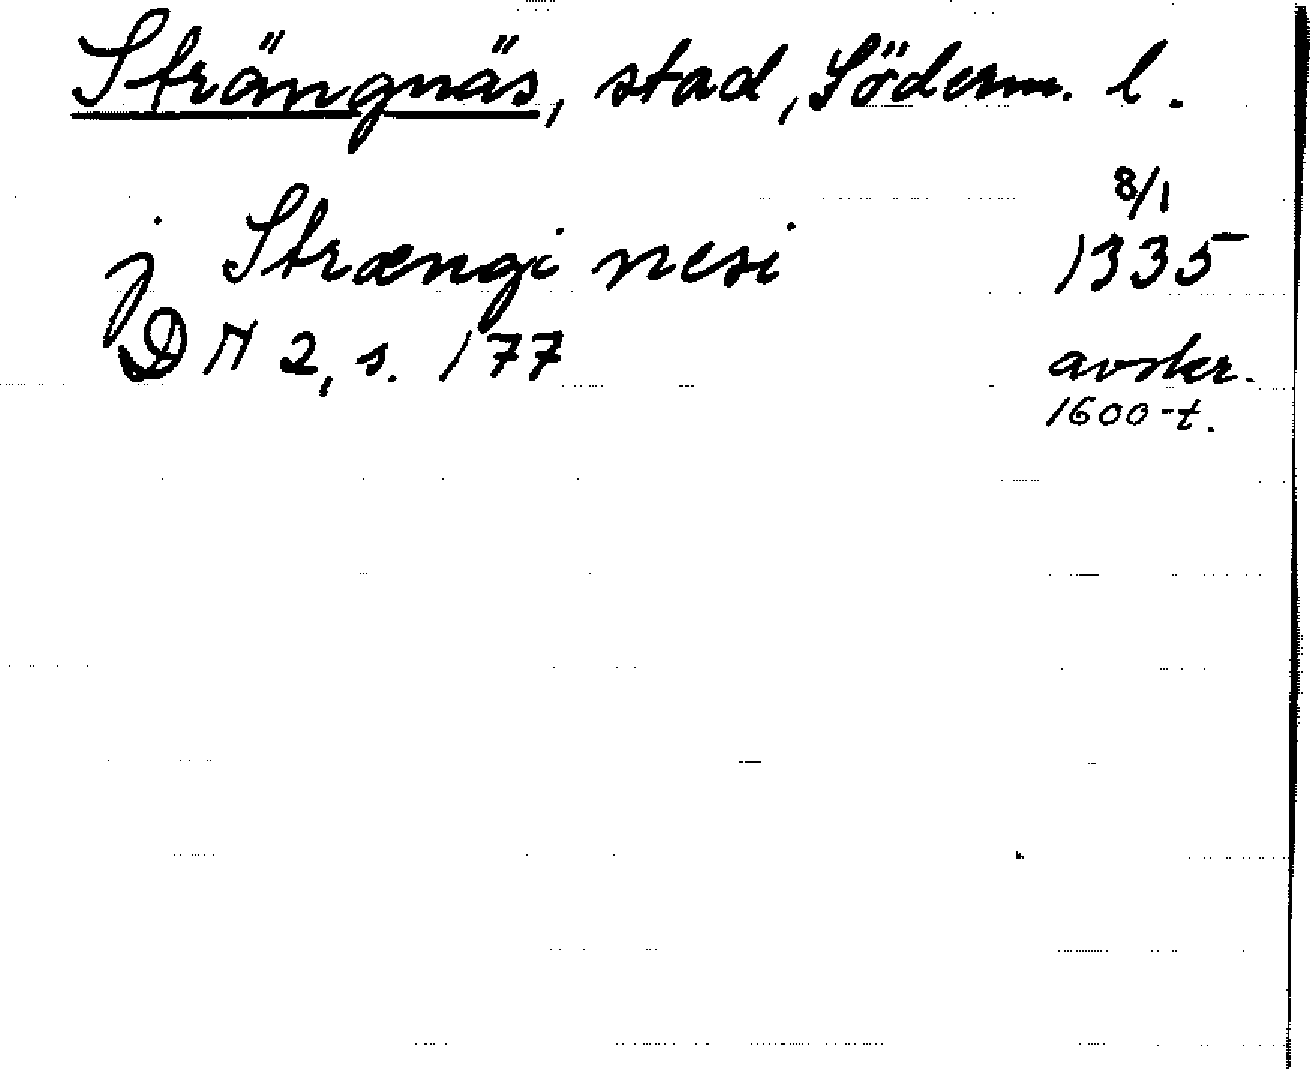 Strängnäs, stad, Söderm. l.
8/1
j Strængi nesi 1335
DN 2, s. 177 avskr.
1600-t.